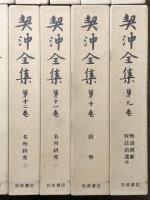 契沖全集
第九巻
契沖全集
第十巻
語學
岩波書店
契沖全集
第十一巻
名所研究一
岩波書店
契沖全集
第十二巻
名所研究二
岩波書店
岩波書店